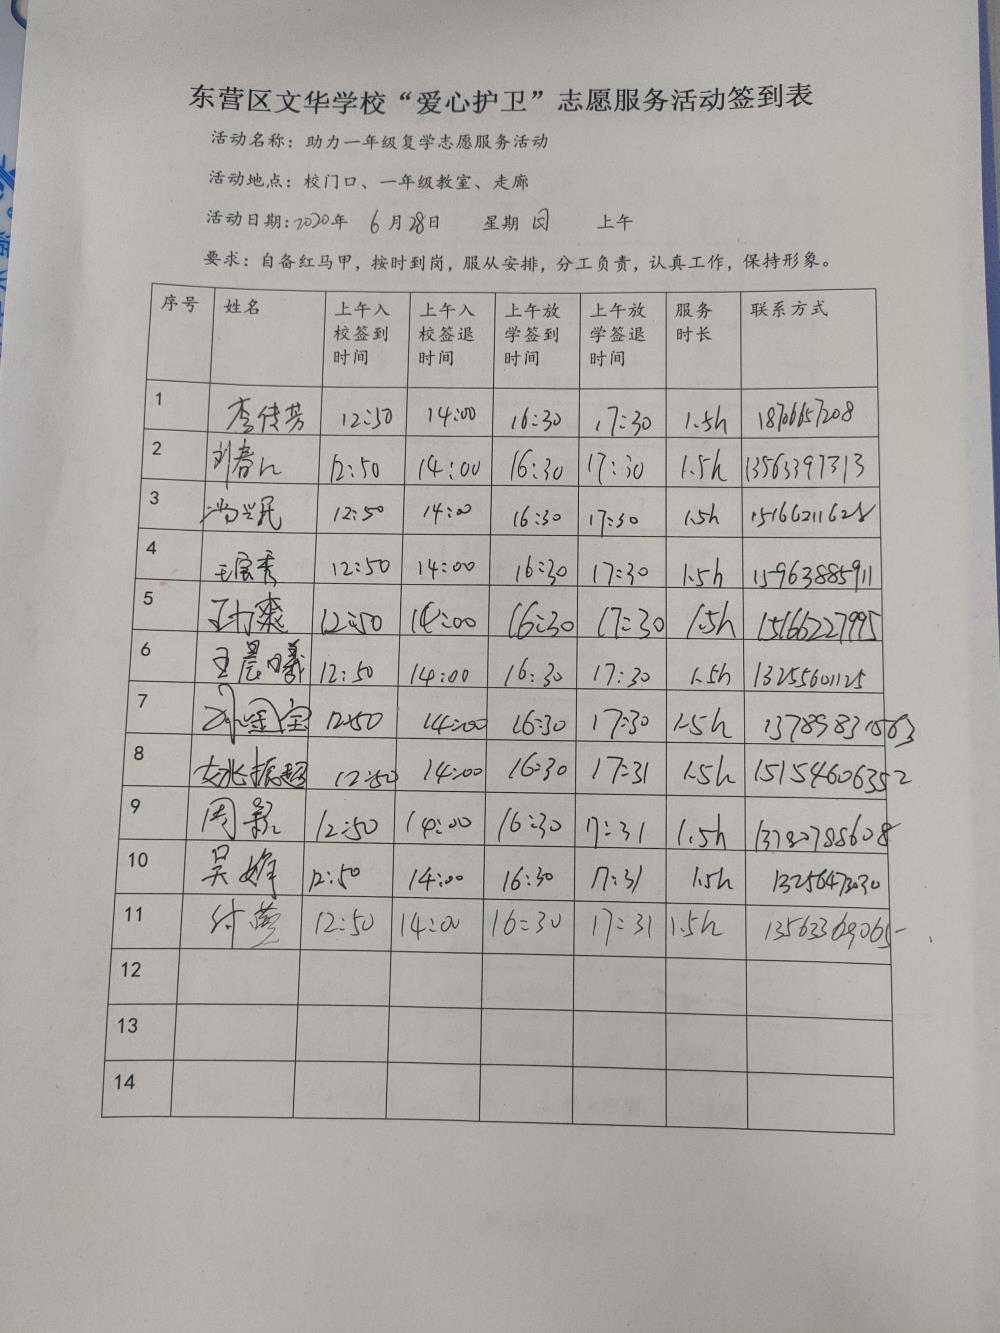 东营区文华学校“爱心护卫”志愿服务活动签到表
活动名称：助力一年级复学志愿服务活动
活动地点：校门口、一年级教室、走廊
活动日期：2020年 6月28日 星期日 上午
要求：自备红马甲，按时到岗，服从安排，分工负责，认真工作，保持形象。
序号 姓名 上午入校签到时间 上午入校签退时间 上午放学签到时间 上午放学签退时间 服务时长 联系方式
1 李传芳 12:50 14:00 16:30 17:30 1.5h 18706657208
2 12:50 14:00 16:30 17:30 1.5h 13563397313
3 冯兴民 12:50 14:00 16:30 17:30 1.5h 15166211628
4 王宝秀 12:50 14:00 16:30 17:30 1.5h 15963885911
5 12:50 14:00 16:30 17:30 1.5h 15166227995
6 王晨曦 12:50 14:00 16:30 17:30 1.5h 13255601125
7 12:50 14:00 16:30 17:30 1.5h 13789831563
8 姚振超 12:50 14:00 16:30 17:31 1.5h 15154606352
9 周颖 12:50 14:00 16:30 17:31 1.5h 13780788608
10 吴婷 12:50 14:00 16:30 17:31 1.5h 13256473030
11 付莹 12:50 14:00 16:30 17:31 1.5h 13563369065
12
13
14